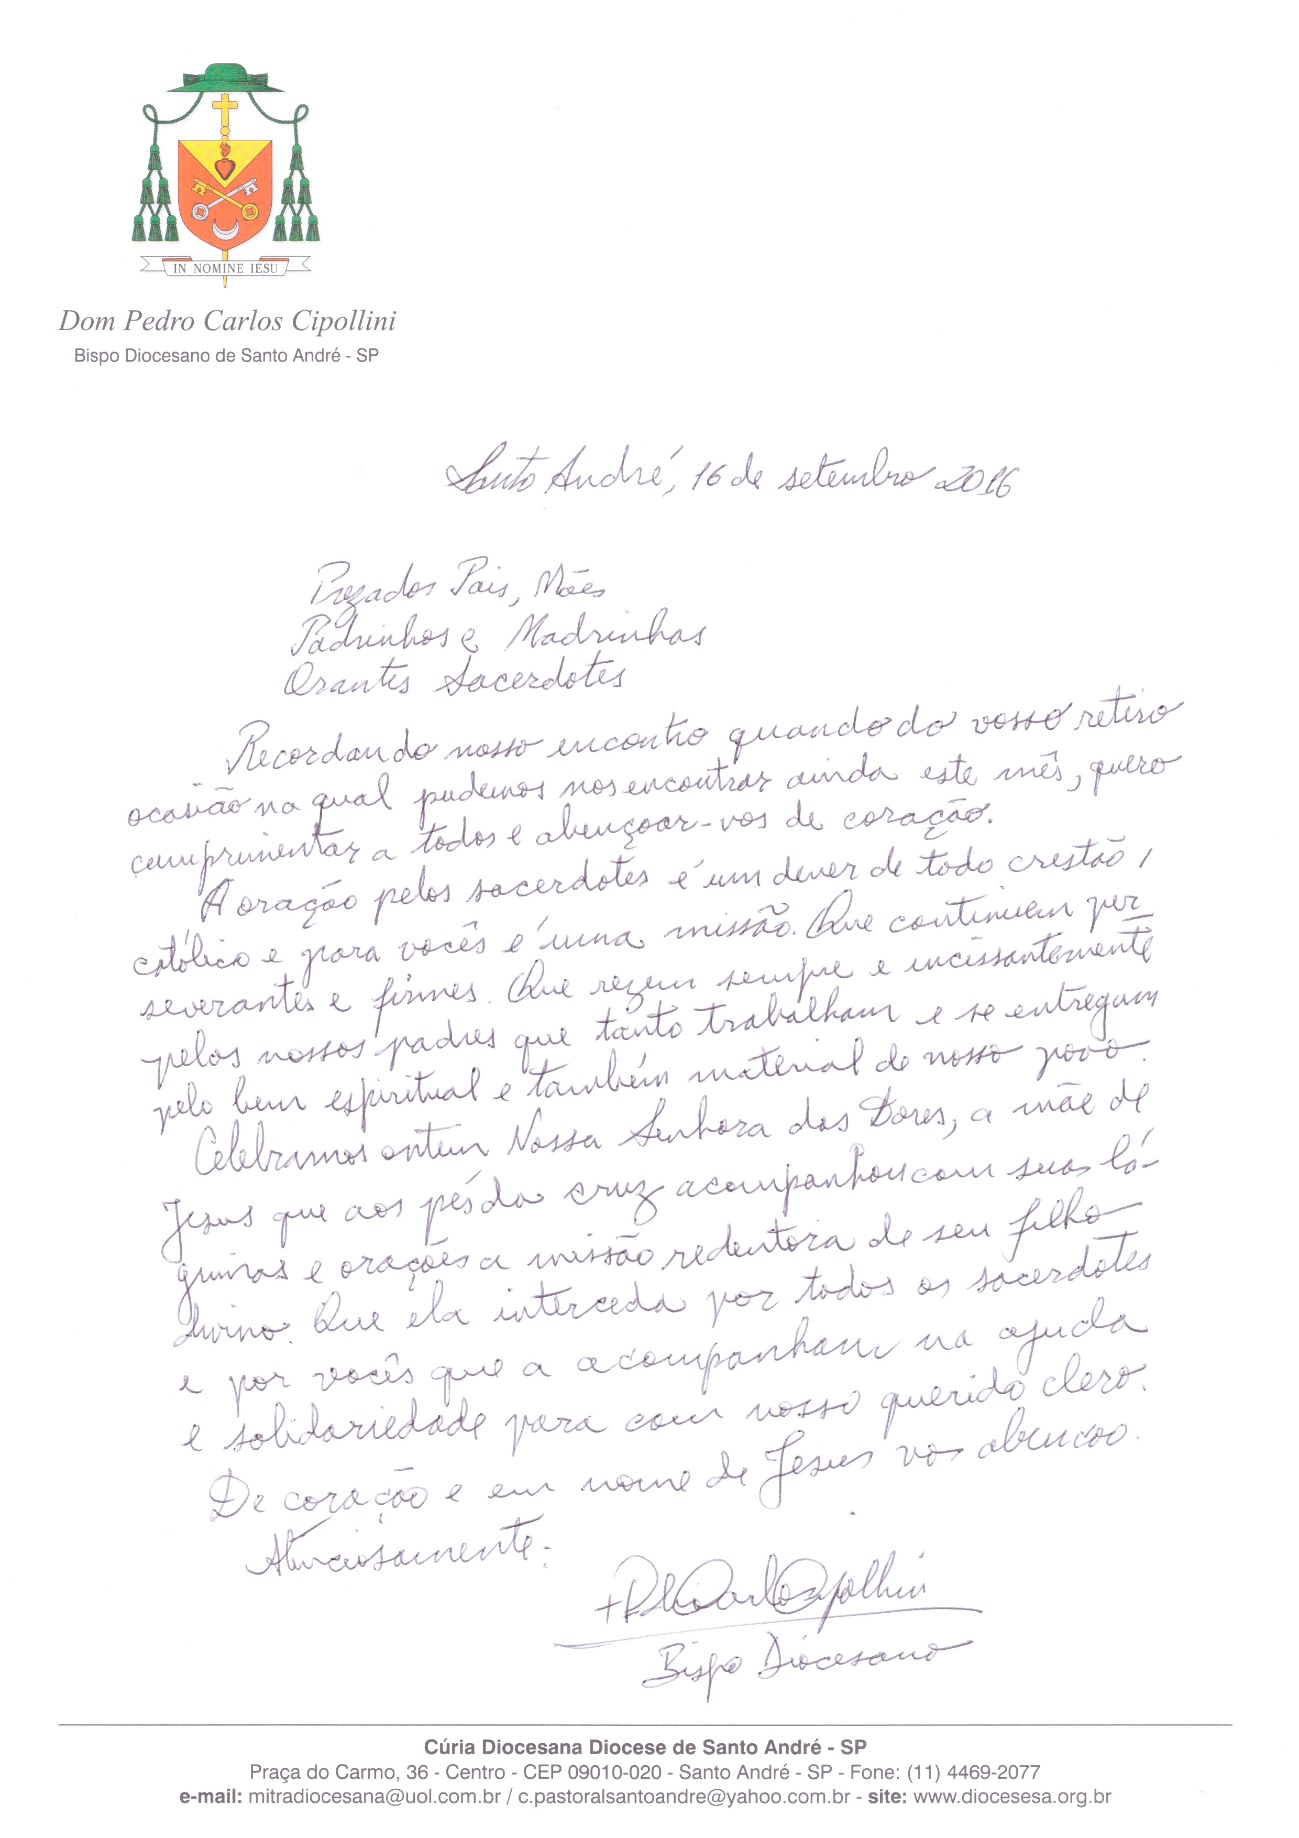 IN NOMINE IESU
Dom Pedro Carlos Cipollini
Bispo Diocesano de Santo André - SP
Santo André, 16 de setembro 2016
Prezados Pais, Mães
Padrinhos e Madrinhas
Orantes Sacerdotes
Recordando nosso encontro quando do vosso retiro
ocasião na qual pudemos nos encontrar ainda este mês, quero
cumprimentar a todos e abençoar-vos de coração.
A oração pelos sacerdotes é um dever de todo cristão,
católico e para vocês é uma missão. Que continuem per
severantes e firmes. Que rezem sempre e incissantemente
pelos nossos padres que tanto trabalham e se entregam
pelo bem espiritual e também material de nosso povo.
Celebramos ontem Nossa Senhora das Dores, a mãe de
Jesus que aos pés da cruz acompanhou com suas lá-
grimas e orações a missão redentora de seu filho
divino. Que ela interceda por todos os sacerdotes
e por vocês que a acompanham na ajuda
e solidariedade para com nosso querido clero.
De coração e em nome de Jesus vos abençoo.
Atenciosamente.
+Pedro Carlos Cipollini
Bispo Diocesano
Cúria Diocesana Diocese de Santo André - SP
Praça do Carmo, 36 - Centro - CEP 09010-020 - Santo André - SP - Fone: (11) 4469-2077
e-mail: mitradiocesana@uol.com.br / c.pastoralsantoandre@yahoo.com.br - site: www.diocesesa.org.br